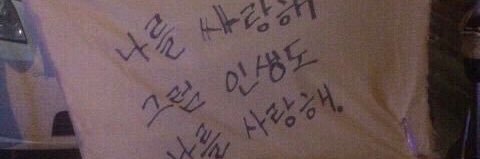 나를 사랑해
그럼 인생도
나를 사랑해.